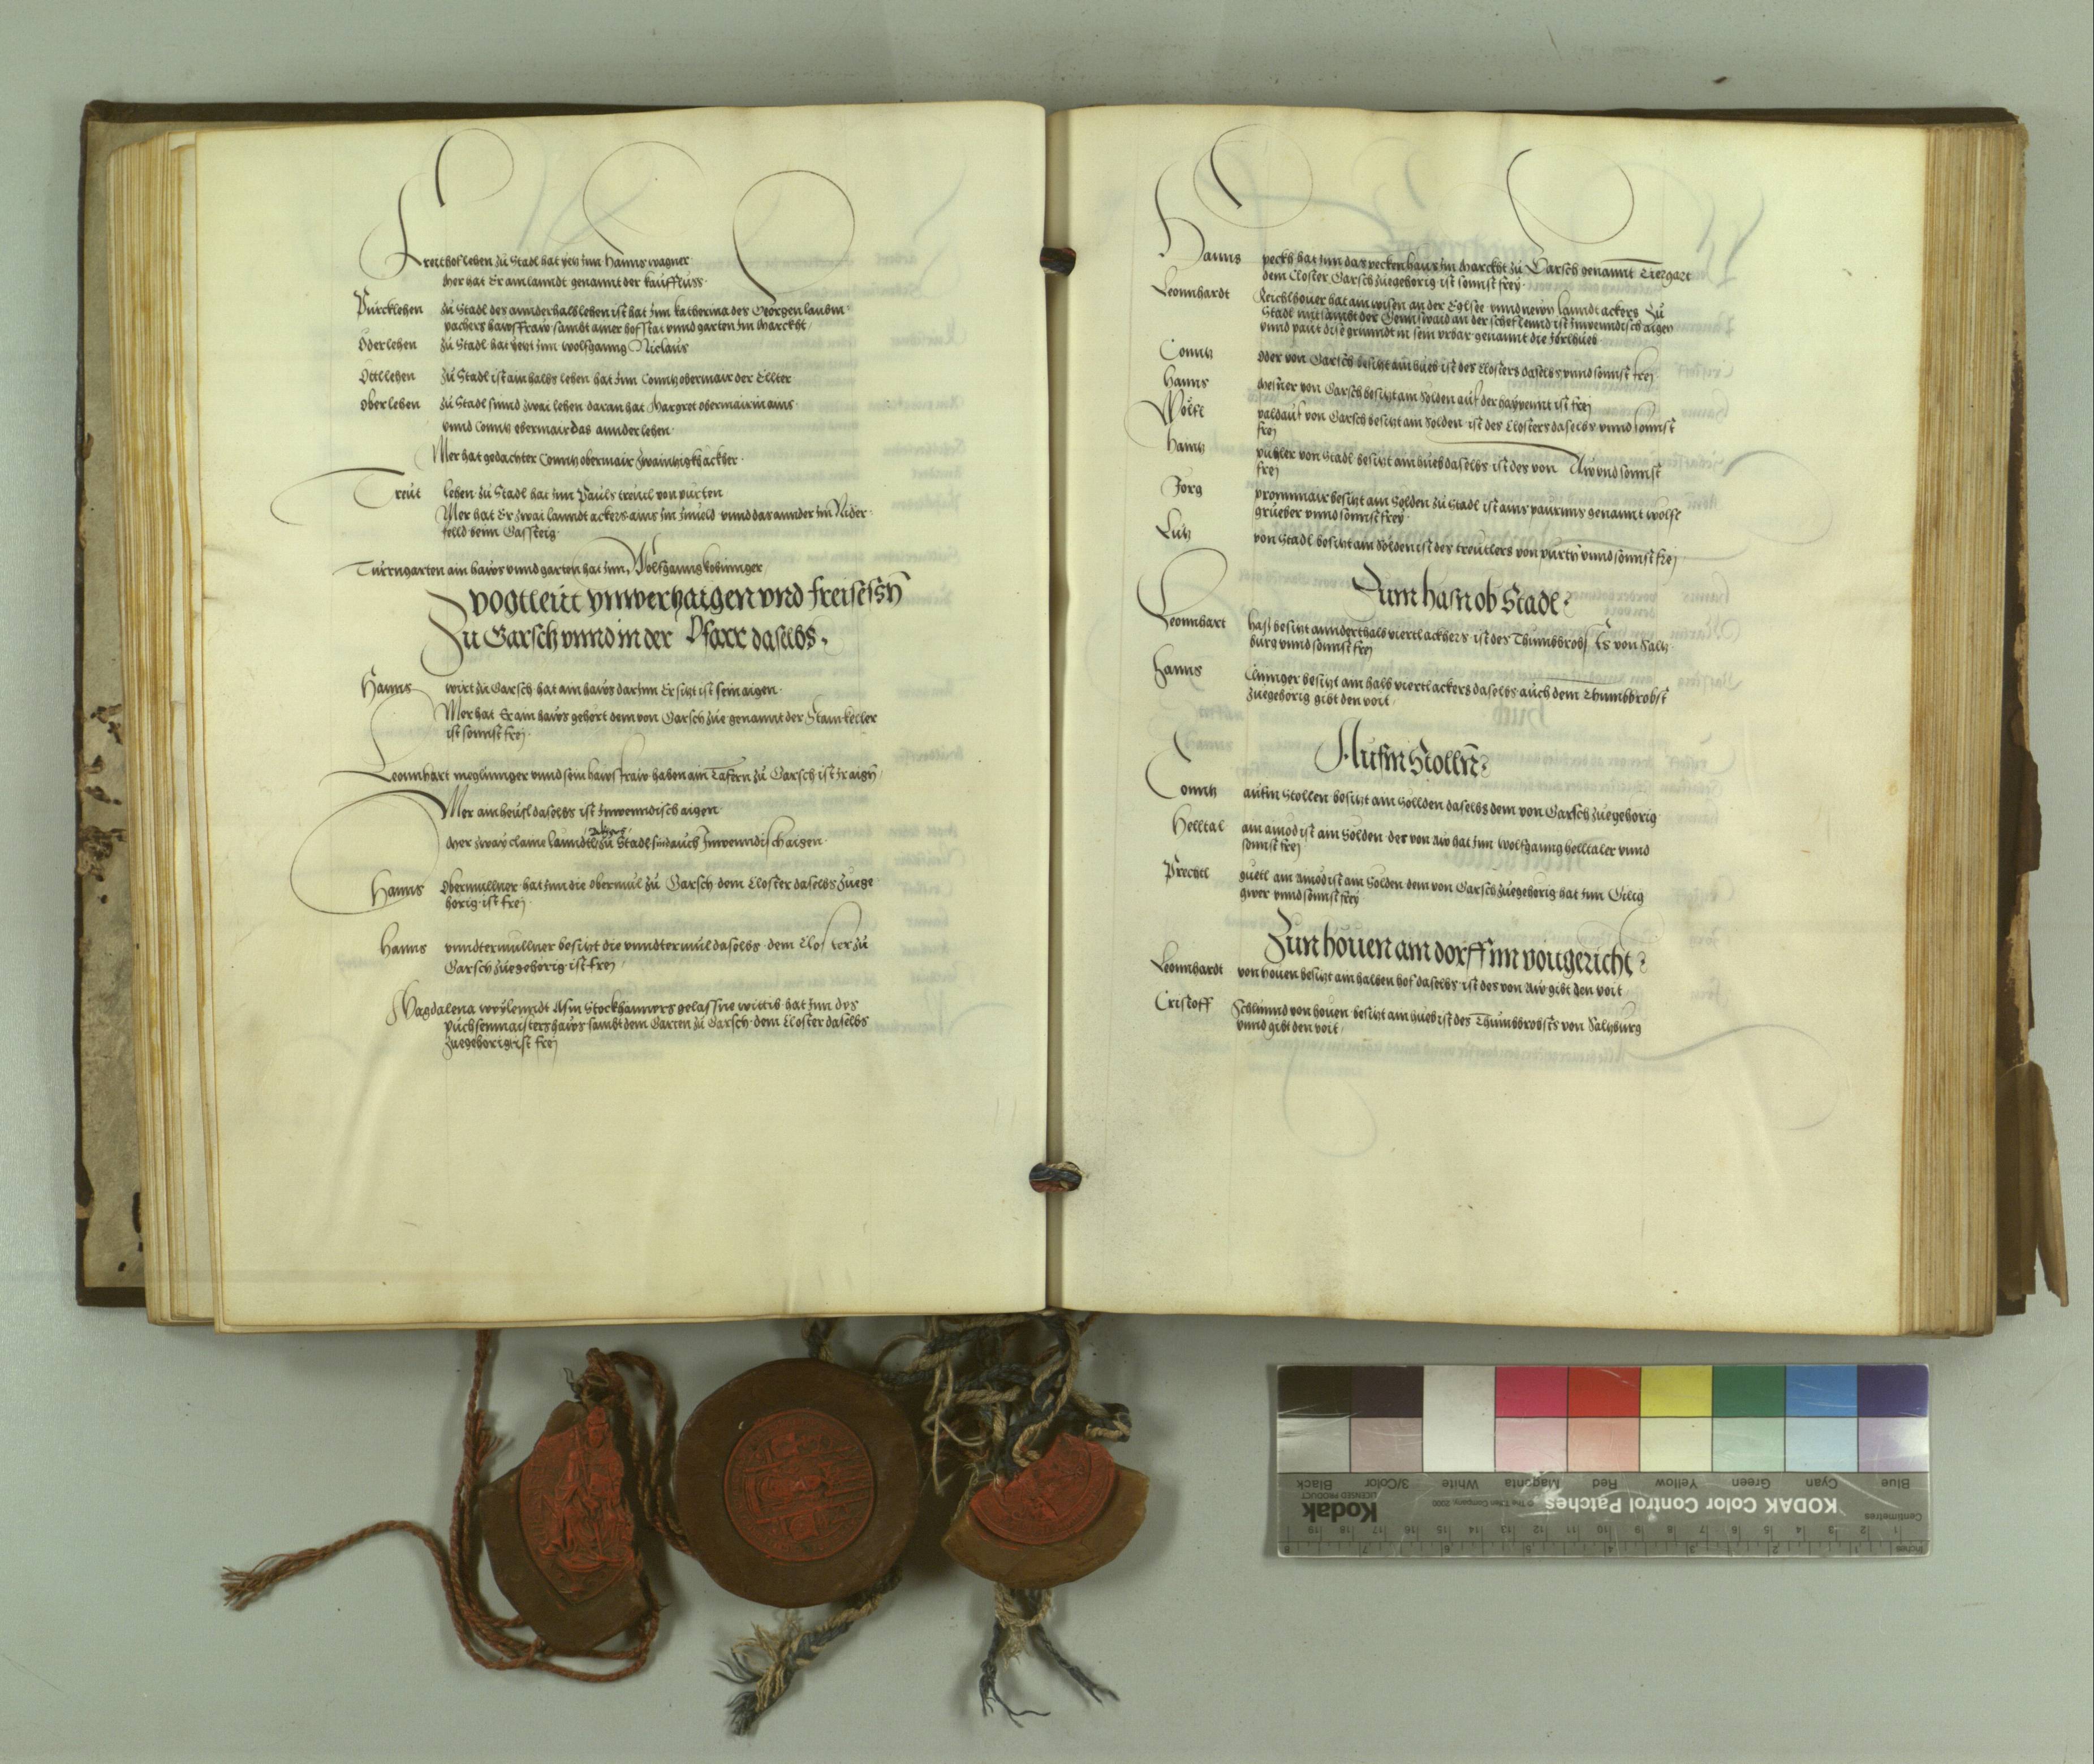 Kreithoflehen zu Stadl hat yetz Inn Hanns wagner
Mer hat Er ain lanndt genannt der kauffluss
Purcklehen zu Stadl des annderhalb lehen ist hat Inn katherina des Georgen laubm
pachers hawsfraw sambt ainer hofstat vnnd garten Im Marckht
Oderlehen zu Stadl hat yetzt Inn wolfgang Niclaus
Ottlehen zu Stadl ist ain halbs lehen hat Inn Conntz obermair der Ellter
Oberlehen zu Stadl sinnd zwai lehen daran hat Margret obermairin ains
vnnd Conntz obermair das annder lehen
Mer hat gedachter Conntz obermair zwaintzigkh äckher
Treut lehen zu Stadl hat Inn Pauls treutl von purten
Mer hat Er zwai lanndt ackers ains Im veld vnnd das annder Im Nider
felld beim Gassteig
Turrngarten ain haws vnnd garten hat Inn Wolfganng kobinger
Vogtleut ynnwertzaigen vnd freisessn
Zu Garsch vnnd in der Pfarr daselbs
Hanns wirt zu Garsch hat ain haws darInn Er sitzt ist sein aigen
Mer hat Er ain haws gehört dem von Garsch zue genannt der Stainkeller
ist sonnst frej
Leonnhart meglinnger vnnd sein hawsfraw haben ain Tafern zu Garsch ist Ir aigen
Mer ain heusl daselbs ist Innwenndisch aigen
äckers
Mer zway claine lanndtl zu Stadl sind auch Innwenndisch aigen
Hanns Obermullner hat Inn die obermül zu Garsch dem Closter daselbs zuege
hörig ist frej
Hanns vnndtermullner besitzt die vnndtermül daselbs dem Closter zu
Garsch zuegehörig ist frej
Magdalena weylenndt Asm Stockhaimers gelassne wittib hat Inn des
puchsenmaisters haws sambt dem Garten zu Garsch dem Closter daselbs
zuegehörig ist frej
Hanns peckh hat Inn das peckenhaus Im Marckht zu Garsch genannt Tiergart
dem Closter Garsch zuegehörig ist sonnst frey
Leonnhardt Reichlhouer hat ain wisen an der Eglsee vnnd newn lanndt ackers zu
Stadl mitsambt der Gennswaid an der ist Innwenndisch aigen
vnnd paut dise grunndt in sein vrbar genannt die
Conntz Oder von Garsch besitzt ain hueb ist des Closters daselbs vnnd sonnst frej
Hanns Mesner von Garsch besitzt ain Sölden auf der ist frej
Wölfl paldauf von Garsch besitzt ain Sölden ist des Closters daselbs vnnd sonnst
frej
Haintz von Stadl besitzt ain hueb daselbs ist des von Aw vnd sonnst
frej
Jorg prominair besitzt ain Sölden zu Stadl ist ains paurins genannt wolfl
grueber vnnd sonnst frey
Lutz von Stadl besitzt ain Sölden ist des treutlers von purtn vnnd sonnst frej
Zum hasn ob Stadl
Leonnhart hasl besitzt annderthalb viertl ackhers ist des Thumbbrobsts von Saltz
burg vnnd sonnst frej
Hanns Clinger besitzt ain halb viertl ackers daselbs auch dem Thumbbrobst
zuegehörig gibt den voit
Aufm Stolln
Conntz aufm Stollen besitzt ain Söllden daselbs dem von Garsch zuegehörig
Helltal am amod ist ain Sölden des von Aw hat Inn Wolfganng helltaler vnnd
sonnst frej
Prechtl guetl am Amod ist ain Sölden dem von Garsch zuegehörig hat Inn Gilig
gwer vnnd sonnst frey
Zun höuen am dorff im voitgericht
Leonnhardt von höuen besitzt ain halben hof daselbs ist des von Aw gibt den voit
Cristoff Schlunnd von höuen besitzt ain hueb ist des Thumbbrobsts von Saltzburg
vnnd gibt den voit
Inches
Centimetres
KODAK Color Control Patches
© The Tiffen Company, 2000
Kodak
LICENSED PRODUCT
Blue Cyan Green Yellow Red Magenta White 3/Color Black